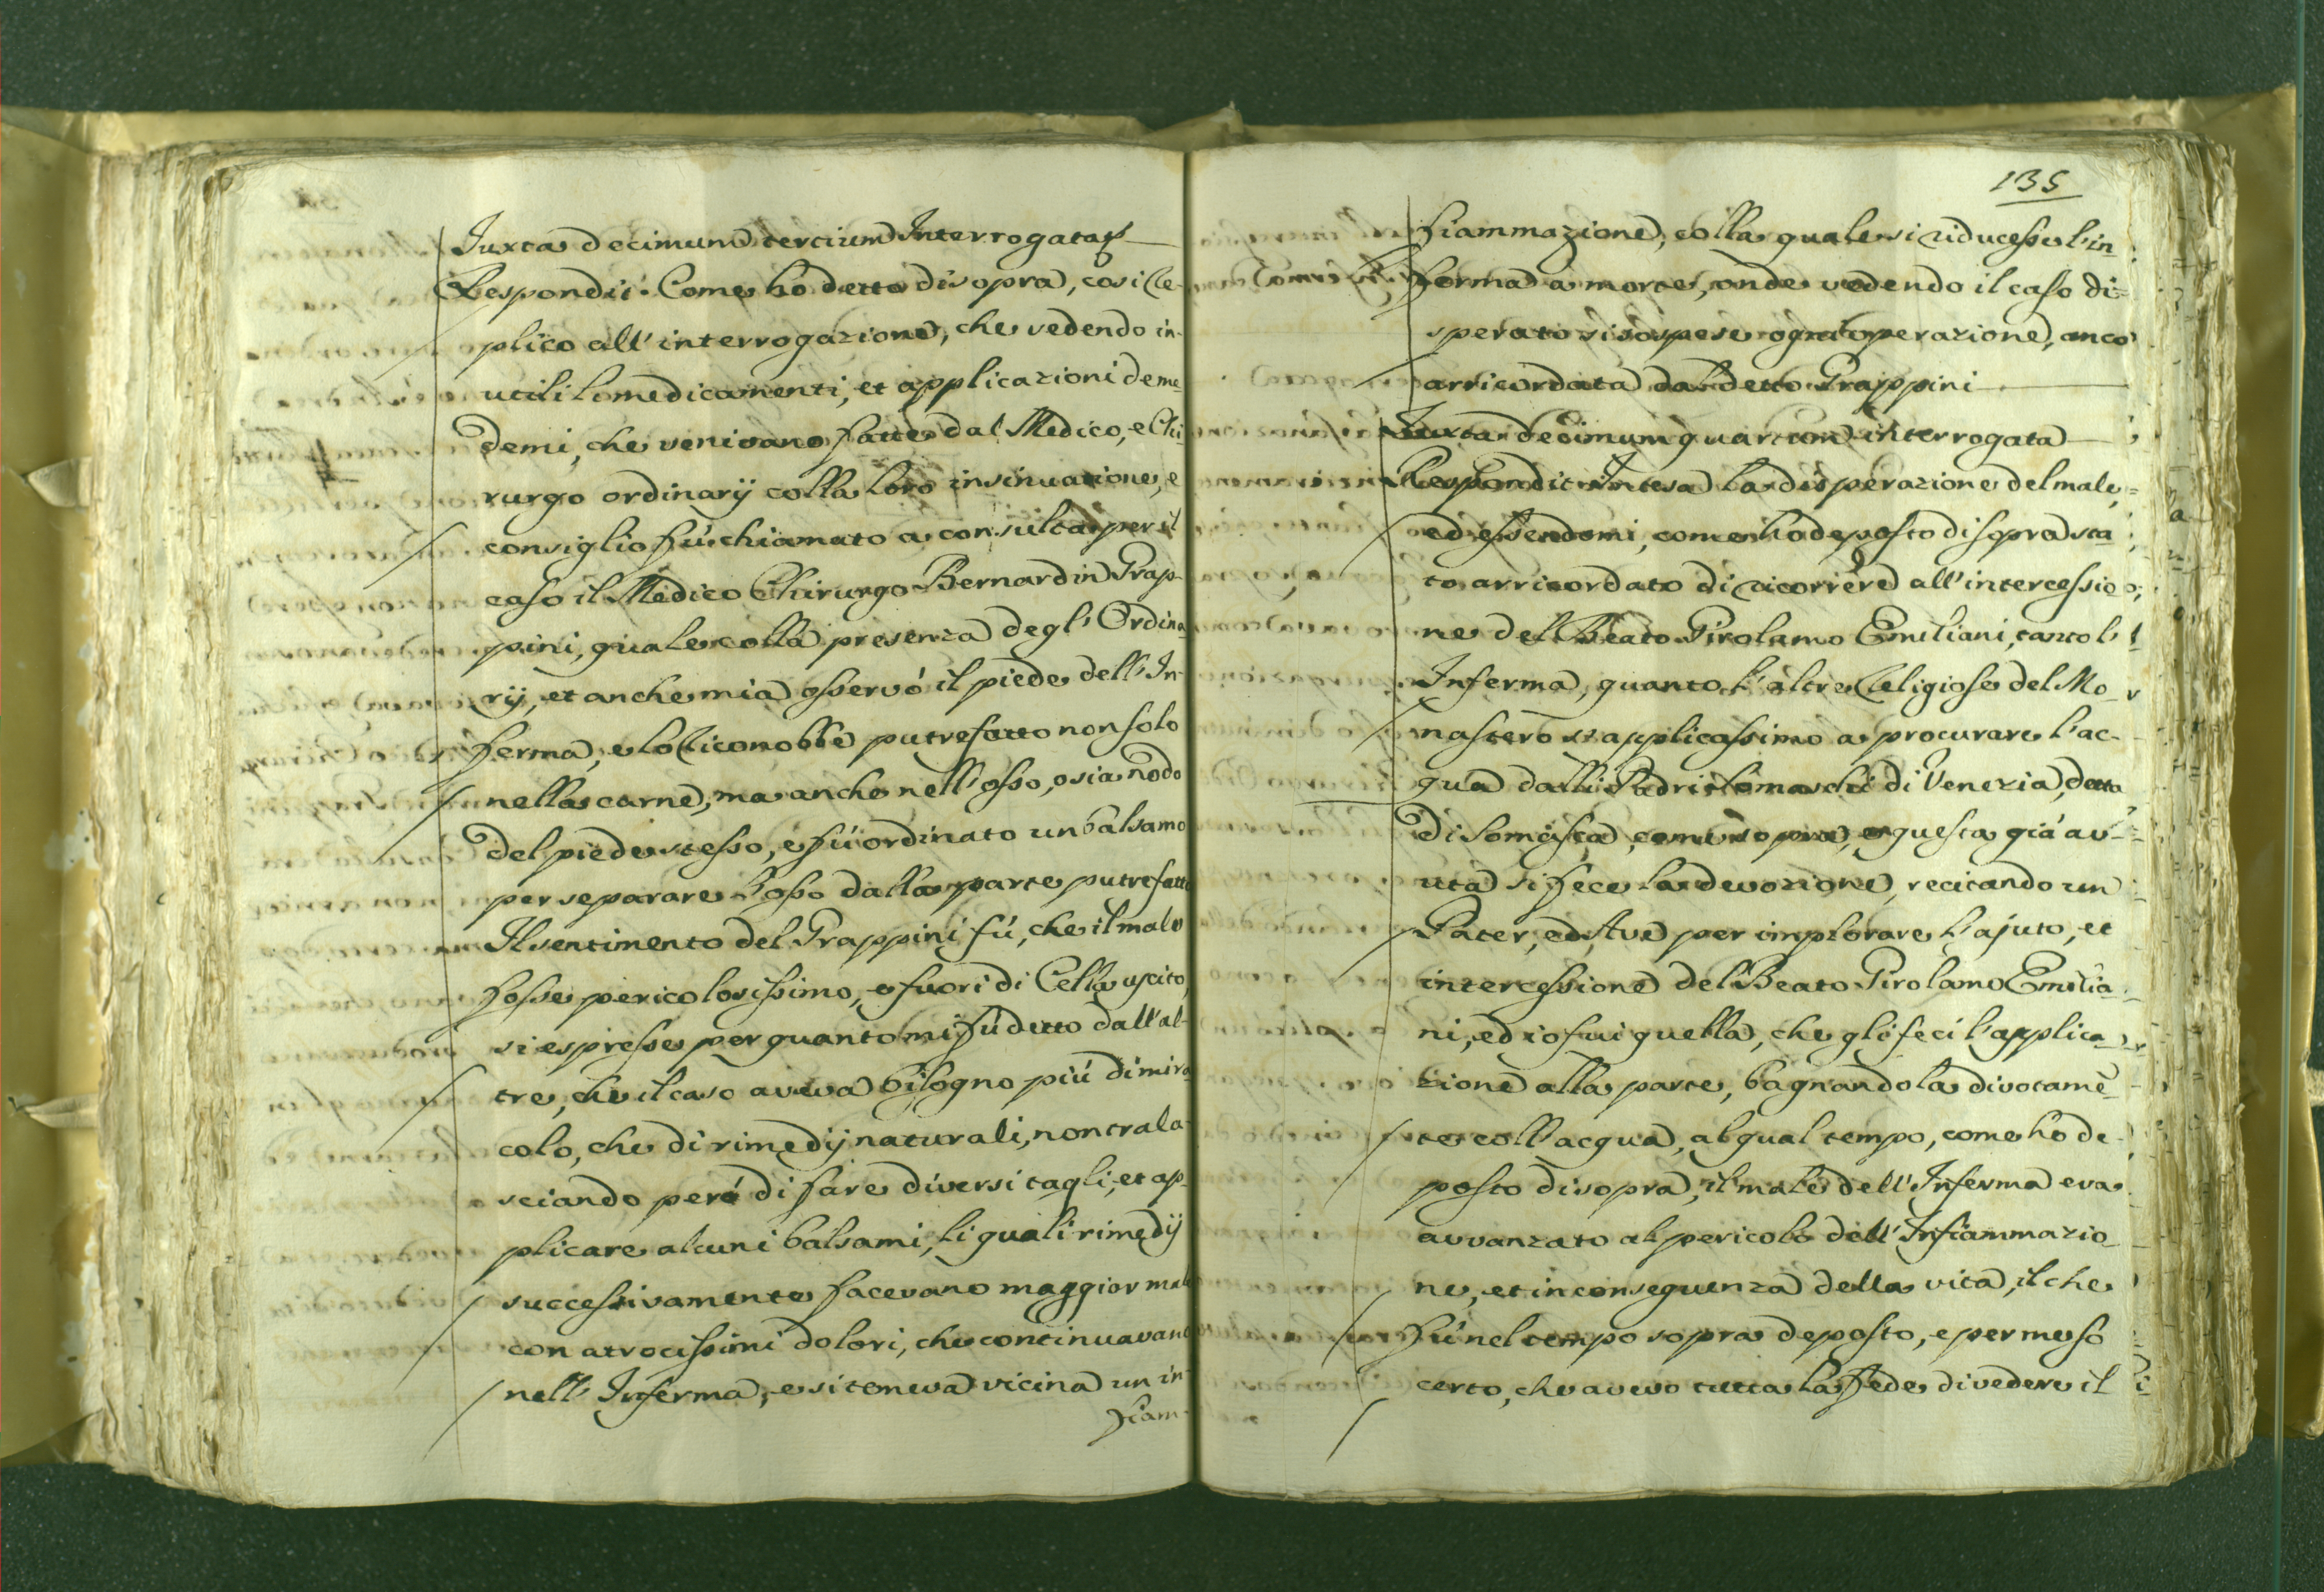 Juxta decimum tertium Interrogata
Respondit: Come hò detto di sopra, così re-
plico all'interrogazione, che vedendo in-
utili li medicamenti, et applicazioni de me
demi, che venivano fatte dal Medico, e Chi
rurgo ordinarij colla loro insinuazione, e
consiglio fù chiamato a consulta per il
caso il Medico Chirurgo Bernardin Grap-
pini, quale colla presenza degl'Ordina
rij, et anche mia osservò il piede dell'In-
ferma, e lo riconobbe putrefatto non solo
nella carne, ma anche nell'osso, o sia nodo
del piede stesso, e fù ordinato un balsamo
per separare l'osso dalla parte putrefatta
Il sentimento del Grappini fù, che il male
fosse pericolosissimo, e fuori di Cella uscito,
si espresse per quanto mi fù detto dall'al-
tre, che il caso aveva bisogno più di mira
colo, che di rimedij naturali, non trala
sciando però di fare diversi tagli, et ap-
plicare alcuni balsami, li quali rimedij
successivamente facevano maggior male
con atrocissimi dolori, che continuavano
nell'Inferma, e si temeva vicina un in
fiam-
135
fiammazione, colla quale si riducesse l'in
ferma a morte, onde vedendo il caso di=
sperato si sospese ogni operazione, anco
arricordata dal detto Grappini
Juxta decimum quartum interrogata
Respondit: Intesa la disperazione del male,
ed essendomi, come hò deposto di sopra sta
to arricordato di ricorrere all'intercessio
ne del Beato Girolamo Emiliani, tanto l'
Inferma, quanto l'altre Religiose del Mo
nastero s'applicassimo a procurare l'ac-
qua dalli Padri Somaschi di Venezia, detta
di Somasca, come sopra, e questa già av
uta si fece la devozione, recitando un
Pater, ed Ave per implorare l'ajuto, et
intercessione del Beato Girolamo Emilia
ni, ed io fui quella, che gli feci l'applica
zione alla parte, bagnandola divotamẽ
te coll'acqua, al qual tempo, come hò de-
posto di sopra, il male dell'Inferma era
avvanzato al pericolo dell'Infiammazio
ne, et in conseguenza della vita, il che
fù nel tempo sopra deposto, e per me sò
certo, che avevo tutta la fede di vedere il